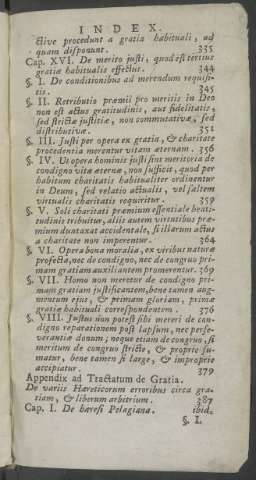 INDEX.
ctive procedunt a gratia habituali, ad
quam disponunt. 335
Cap. XVI. De merito justi, quod est tertius
gratiæ habitualis effectus. 344
§. I. De conditionibus ad merendum requisi-
tis. 345
§. II. Retributio præmii pro meritis in Deo
non est actus gratitudinis, aut fidelitatis,
sed strictæ justitiæ, non commutativæ, sed
distributivæ. 351
§. III. Justi per opera ex gratia, & charitate
procedentia merentur vitam æternam. 356
§. IV. Ut opera hominis justi sint meritoria de
condigno vitæ æternæ, non sufficit, quod per
habitum charitatis habitualiter ordinentur
in Deum, sed relatio actualis, vel saltem
virtualis charitatis requiritur. 359
§. V. Soli charitati præmium essentiale beati-
tudinis tribuitur, aliis autem virtutibus præ-
mium duntaxat accidentale, si illarum actus
a charitate non imperentur. 364
§. VI. Opera bona moralia, ex viribus naturæ
profecta, nec de condigno, nec de congruo pri-
mam gratiam auxiliantem promerentur. 369
§. VII. Homo non meretur de condigno pri-
mam gratiam justificantem, bene tamen aug-
mentum ejus, & primam gloriam, primæ
gratiæ habituali correspondentem. 376
§. VIII. Justus non potest sibi mereri de con-
digno reparationem post lapsum, nec perse-
verantiæ donum; neque etiam de congruo, si
meritum de congruo stricte, & proprie su-
matur, bene tamen si large, & improprie
accipiatur. 379
Appendix ad Tractatum de Gratia.
De variis Hæreticorum erroribus circa gra-
tiam, & liberum arbitrium. 387
Cap. I. De hæresi Pelagiana. ibid.
§. I.